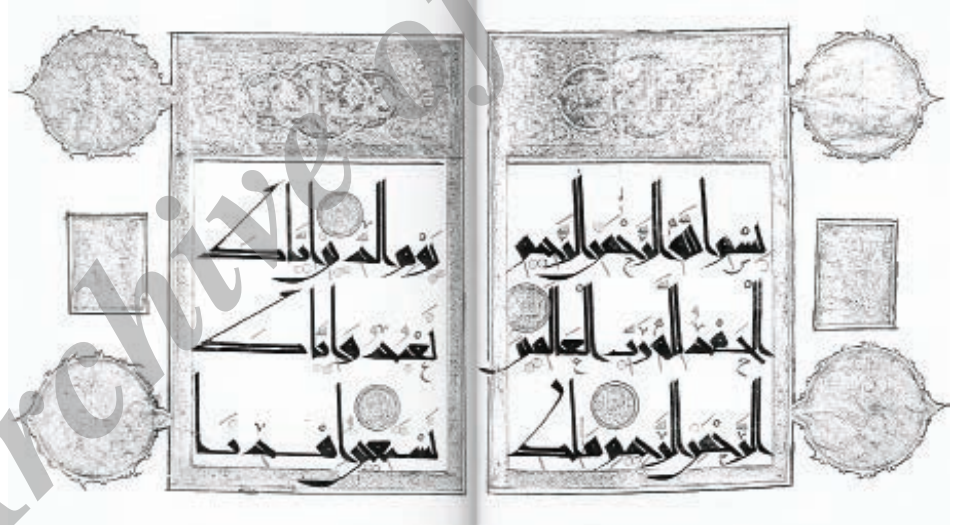 بسم الله الرحمن الرحيم
الحمد لله رب العالمين
الرحمن الرحيم ملك
يوم الدين اياك
نعبد واياك
نستعين اهدنا
Archive of